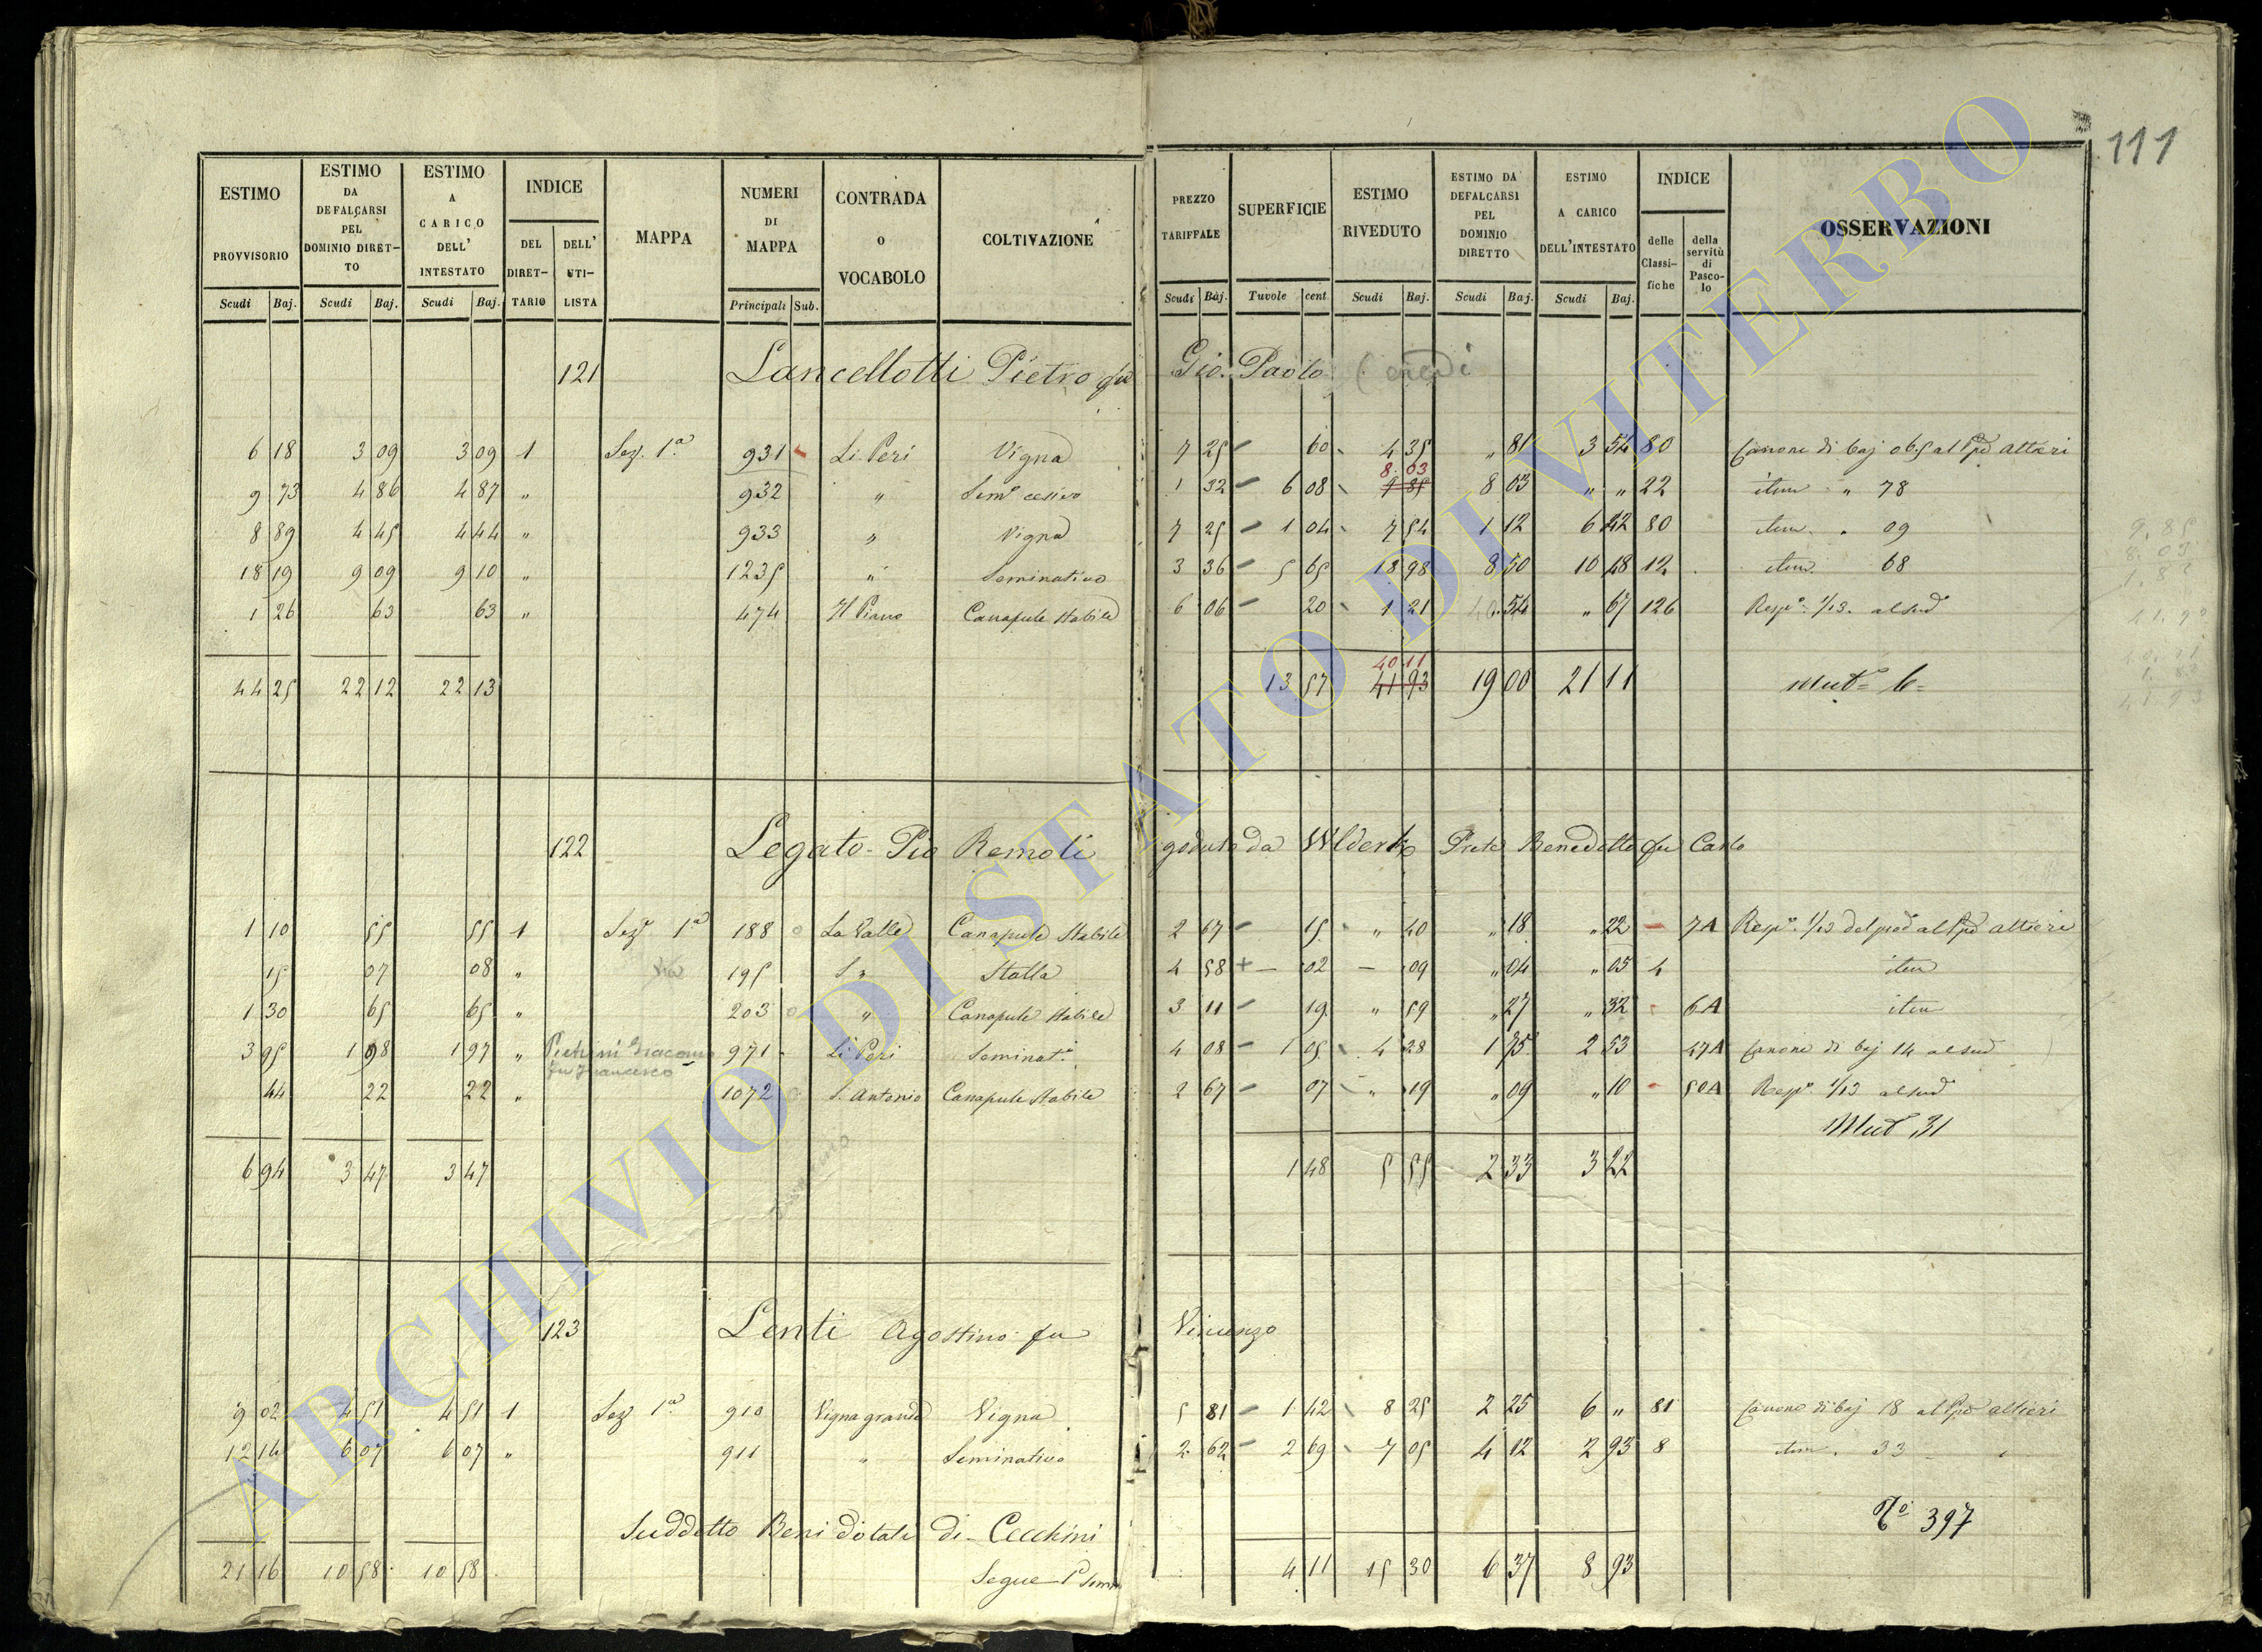 111
ESTIMO PROVVISORIO Scudi Baj.
ESTIMO DA DEFALCARSI PEL DOMINIO DIRETTO Scudi Baj.
ESTIMO A CARICO DELL' INTESTATO Scudi Baj.
INDICE DEL DIRETTARIO DELL' UTILISTA
MAPPA
NUMERI DI MAPPA Principali Sub.
CONTRADA O VOCABOLO
COLTIVAZIONE
PREZZO TARIFFALE Scudi Baj.
SUPERFICIE Tavole cent.
ESTIMO RIVEDUTO Scudi Baj.
ESTIMO DA DEFALCARSI PEL DOMINIO DIRETTO Scudi Baj.
ESTIMO A CARICO DELL'INTESTATO Scudi Baj.
INDICE delle Classifiche della servitù di Pascolo
OSSERVAZIONI
121 Lancellotti Pietro fu Gio. Paolo (eredi
6 18 3 09 3 09 1 Sez. 1ª 931 Li Peri Vigna 7 25 60 4 35 " 81 3 54 80 Canone di baj 06.5 al Ppe Altieri
9 73 4 86 4 87 " 932 " 1 32 6 08 8 03 9 85 8 03 " " 22 item " 78
8 89 4 45 4 44 " 933 " Vigna 7 25 1 04 7 54 1 12 6 42 80 item " 09
18 19 9 09 9 10 " 1235 " Seminativo 3 36 5 65 18 98 8 50 10 48 12 item 68
1 26 63 63 " 474 Il Piano Canapule Stabile 6 06 20 1 21 54 " 67 126 Respa 1/13 al sudo
44 25 22 12 22 13 13 57 40 11 41 93 19 00 21 11 Muta 6
122 Legato Pio Remoli goduto da Prete Benedetto fu Carlo
1 10 55 55 1 Sez 1ª 188 La Valle Canapule Stabile 2 67 15 " 40 " 18 " 22 7A Respa 1/13 del prodo al Ppe Altieri
15 07 08 " 195 Stalla 4 58 + 02 09 " 04 " 05 4 item
1 30 65 65 " 203 " Canapule Stabile 3 11 19 " 59 " 27 " 32 6A item
3 95 1 98 1 97 " Pietrini Giacomo fu Francesco 971 Li Peri Seminato 4 08 1 05 4 28 1 75 2 53 47A Canone di baj 14 al sudo
44 22 22 " 1072 S. Antonio Canapule Stabile 2 67 07 " 19 " 09 " 10 50A Respa 1/13 al sudo
Mut 31
6 94 3 47 3 47 1 48 5 55 2 33 3 22
123 Lenti Agostino fu Vincenzo
9 02 4 51 4 51 1 Sez 1ª 910 Vigna grande Vigna 5 81 1 42 8 25 2 25 6 " 81 Canone di baj 18 al Ppe Altieri
12 14 6 07 6 07 " 911 " Seminativo 2 62 2 69 7 05 4 12 2 93 8 item 33
Suddetto Beni dotali di Cecchini
No 397
21 16 10 58 10 58 4 11 15 30 6 37 8 93
ARCHIVIO DI STATO DI VITERBO